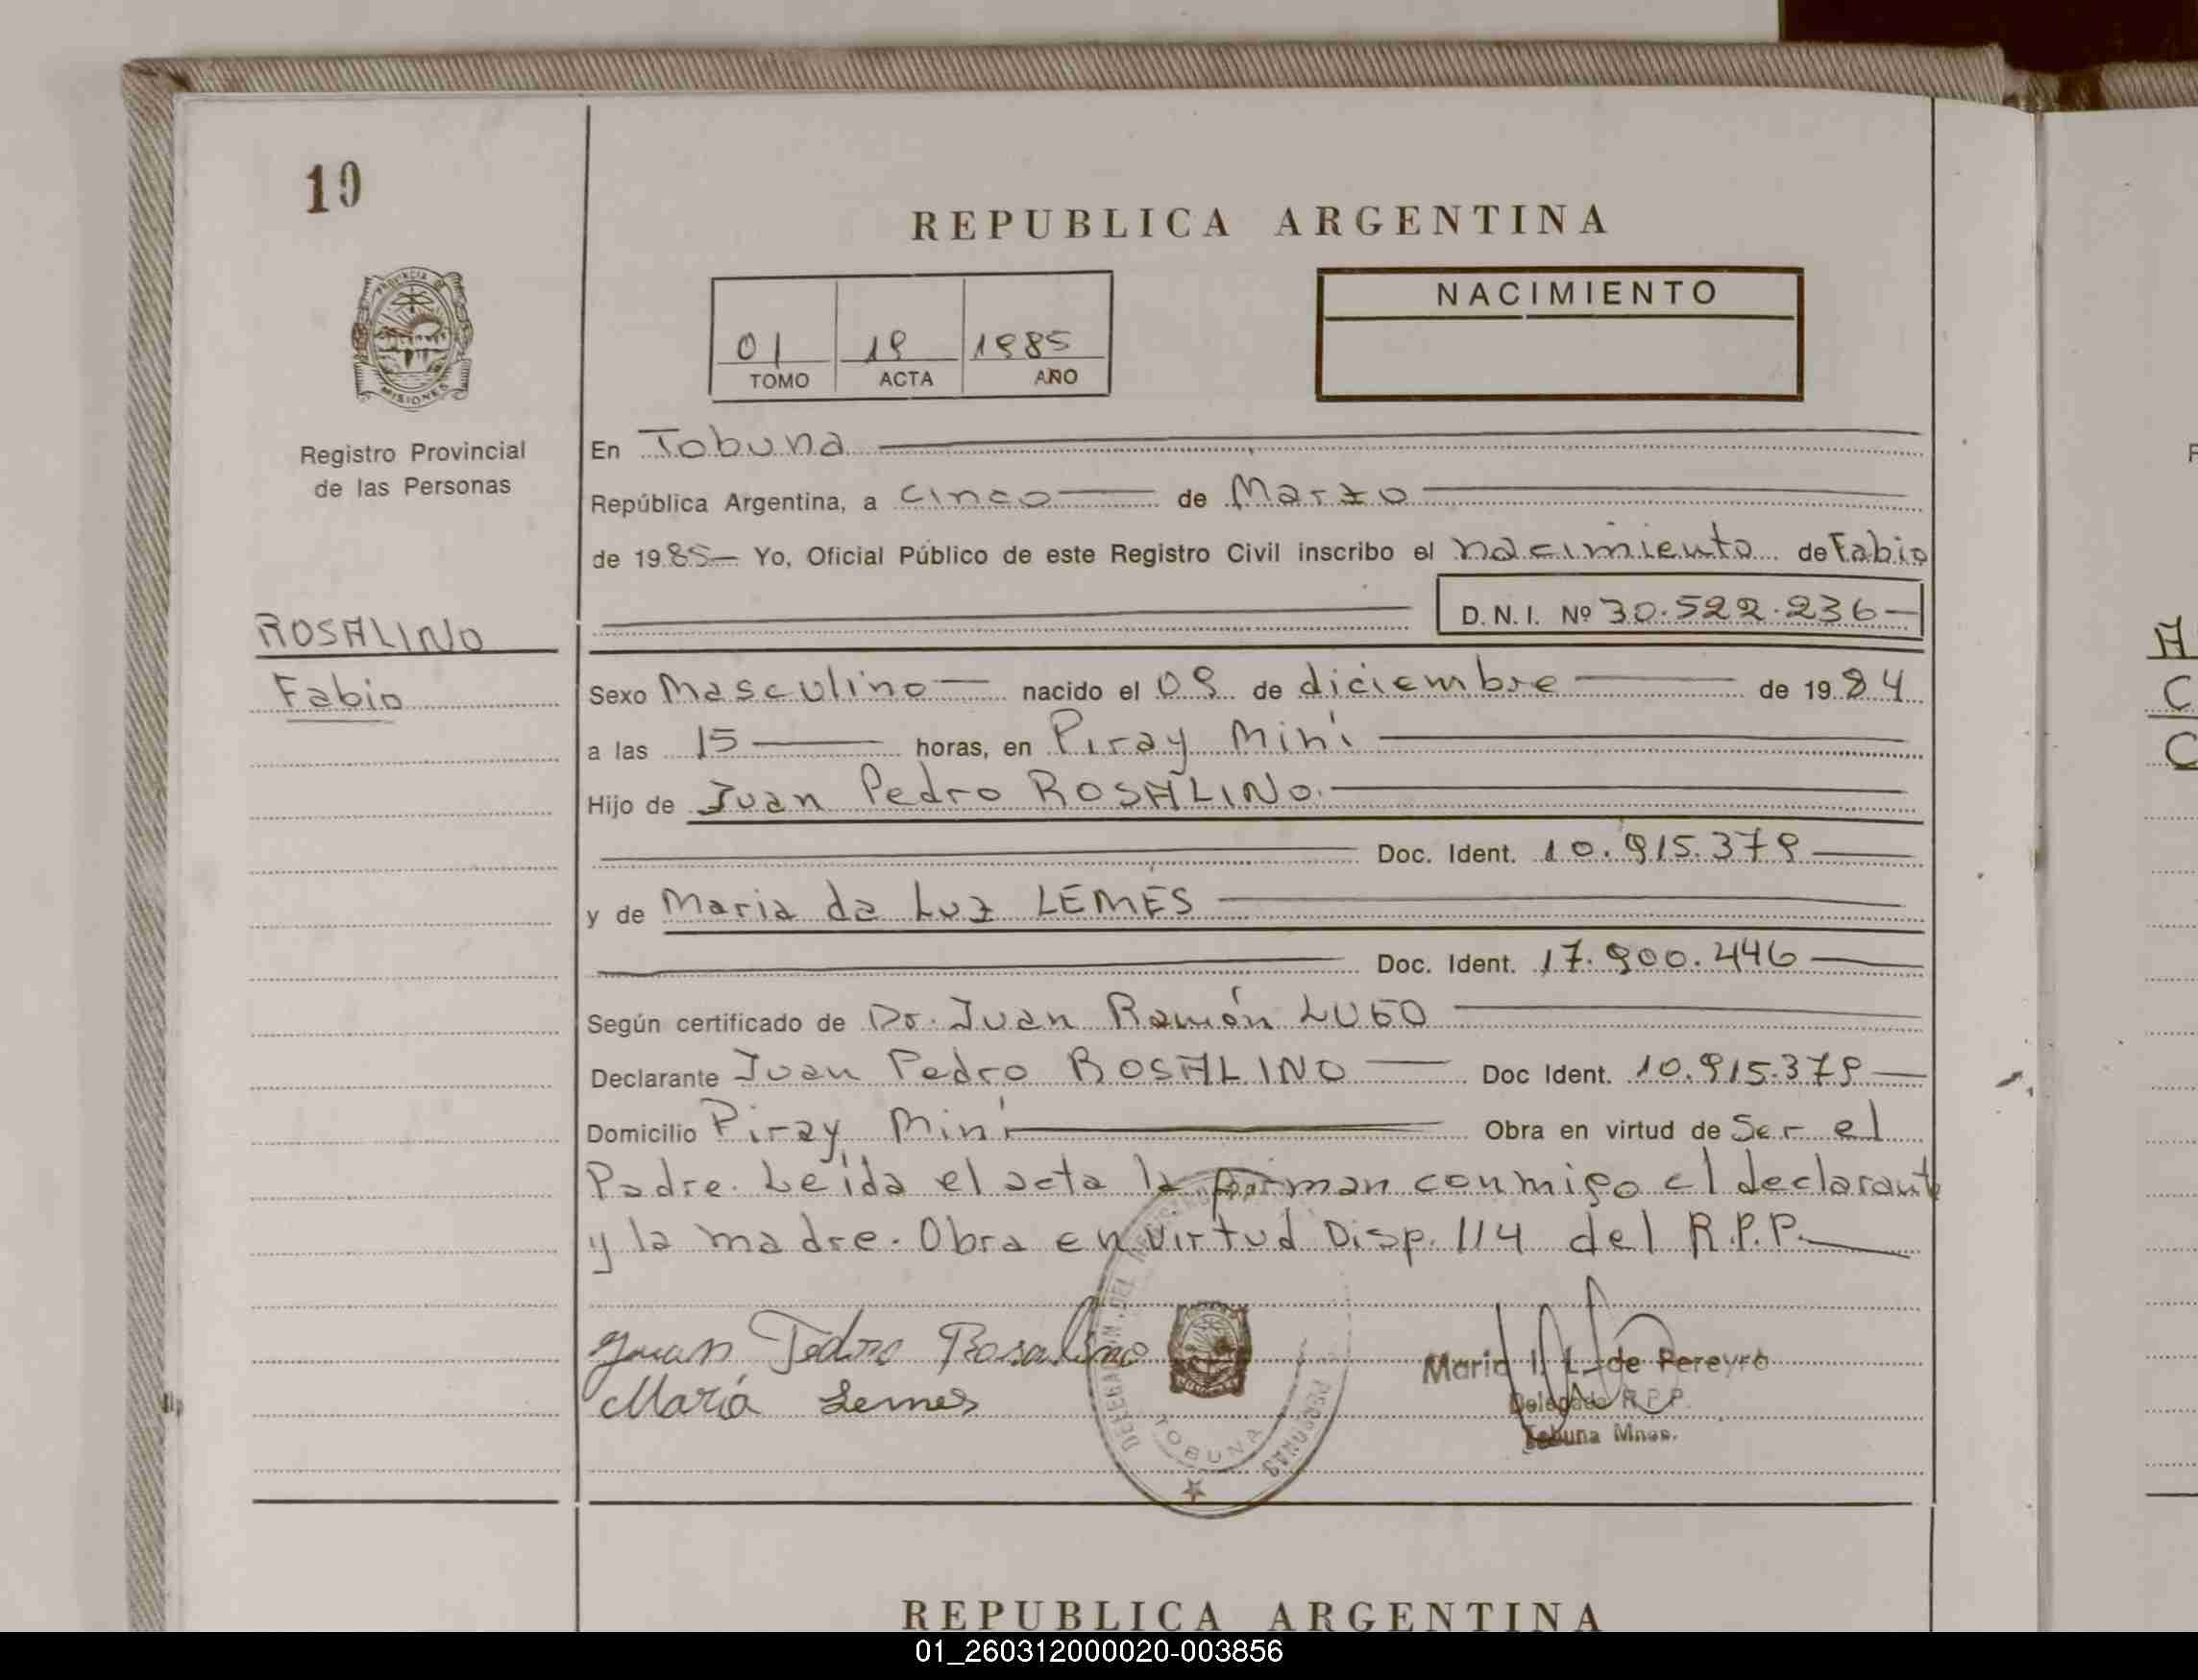 10
REPUBLICA ARGENTINA
NACIMIENTO
01 19 1985
TOMO ACTA AÑO
PROVINCIA DE MISIONES
Registro Provincial
de las Personas
En Tobuna
República Argentina, a cinco de Marzo
de 1985 Yo, Oficial Público de este Registro Civil inscribo el nacimiento de Fabio
D.N.I. Nº 30.522.236
ROSALINO
Fabio
Sexo Masculino nacido el 09 de diciembre de 1984
a las 15 horas, en Piray Miní
Hijo de Juan Pedro ROSALINO.
Doc. Ident. 10.915.379
y de Maria da Luz LEMES
Doc. Ident. 17.900.446
Según certificado de Dr. Juan Ramón LUGO
Declarante Juan Pedro ROSALINO Doc Ident. 10.915.379
Domicilio Piray Miní Obra en virtud de Ser el
Padre. Leída el acta la firman conmigo el declarante
y la madre. Obra en virtud Disp. 114 del R.P.P.
Juan Pedro Rosalino
María Lemes
DELEGACION DEL PERSONAS
TOBUNA
Maria I. L. de Pereyra
Delegada R.P.P.
Tobuna Mnes.
REPUBLICA ARGENTINA
A
C
C
01_260312000020-003856